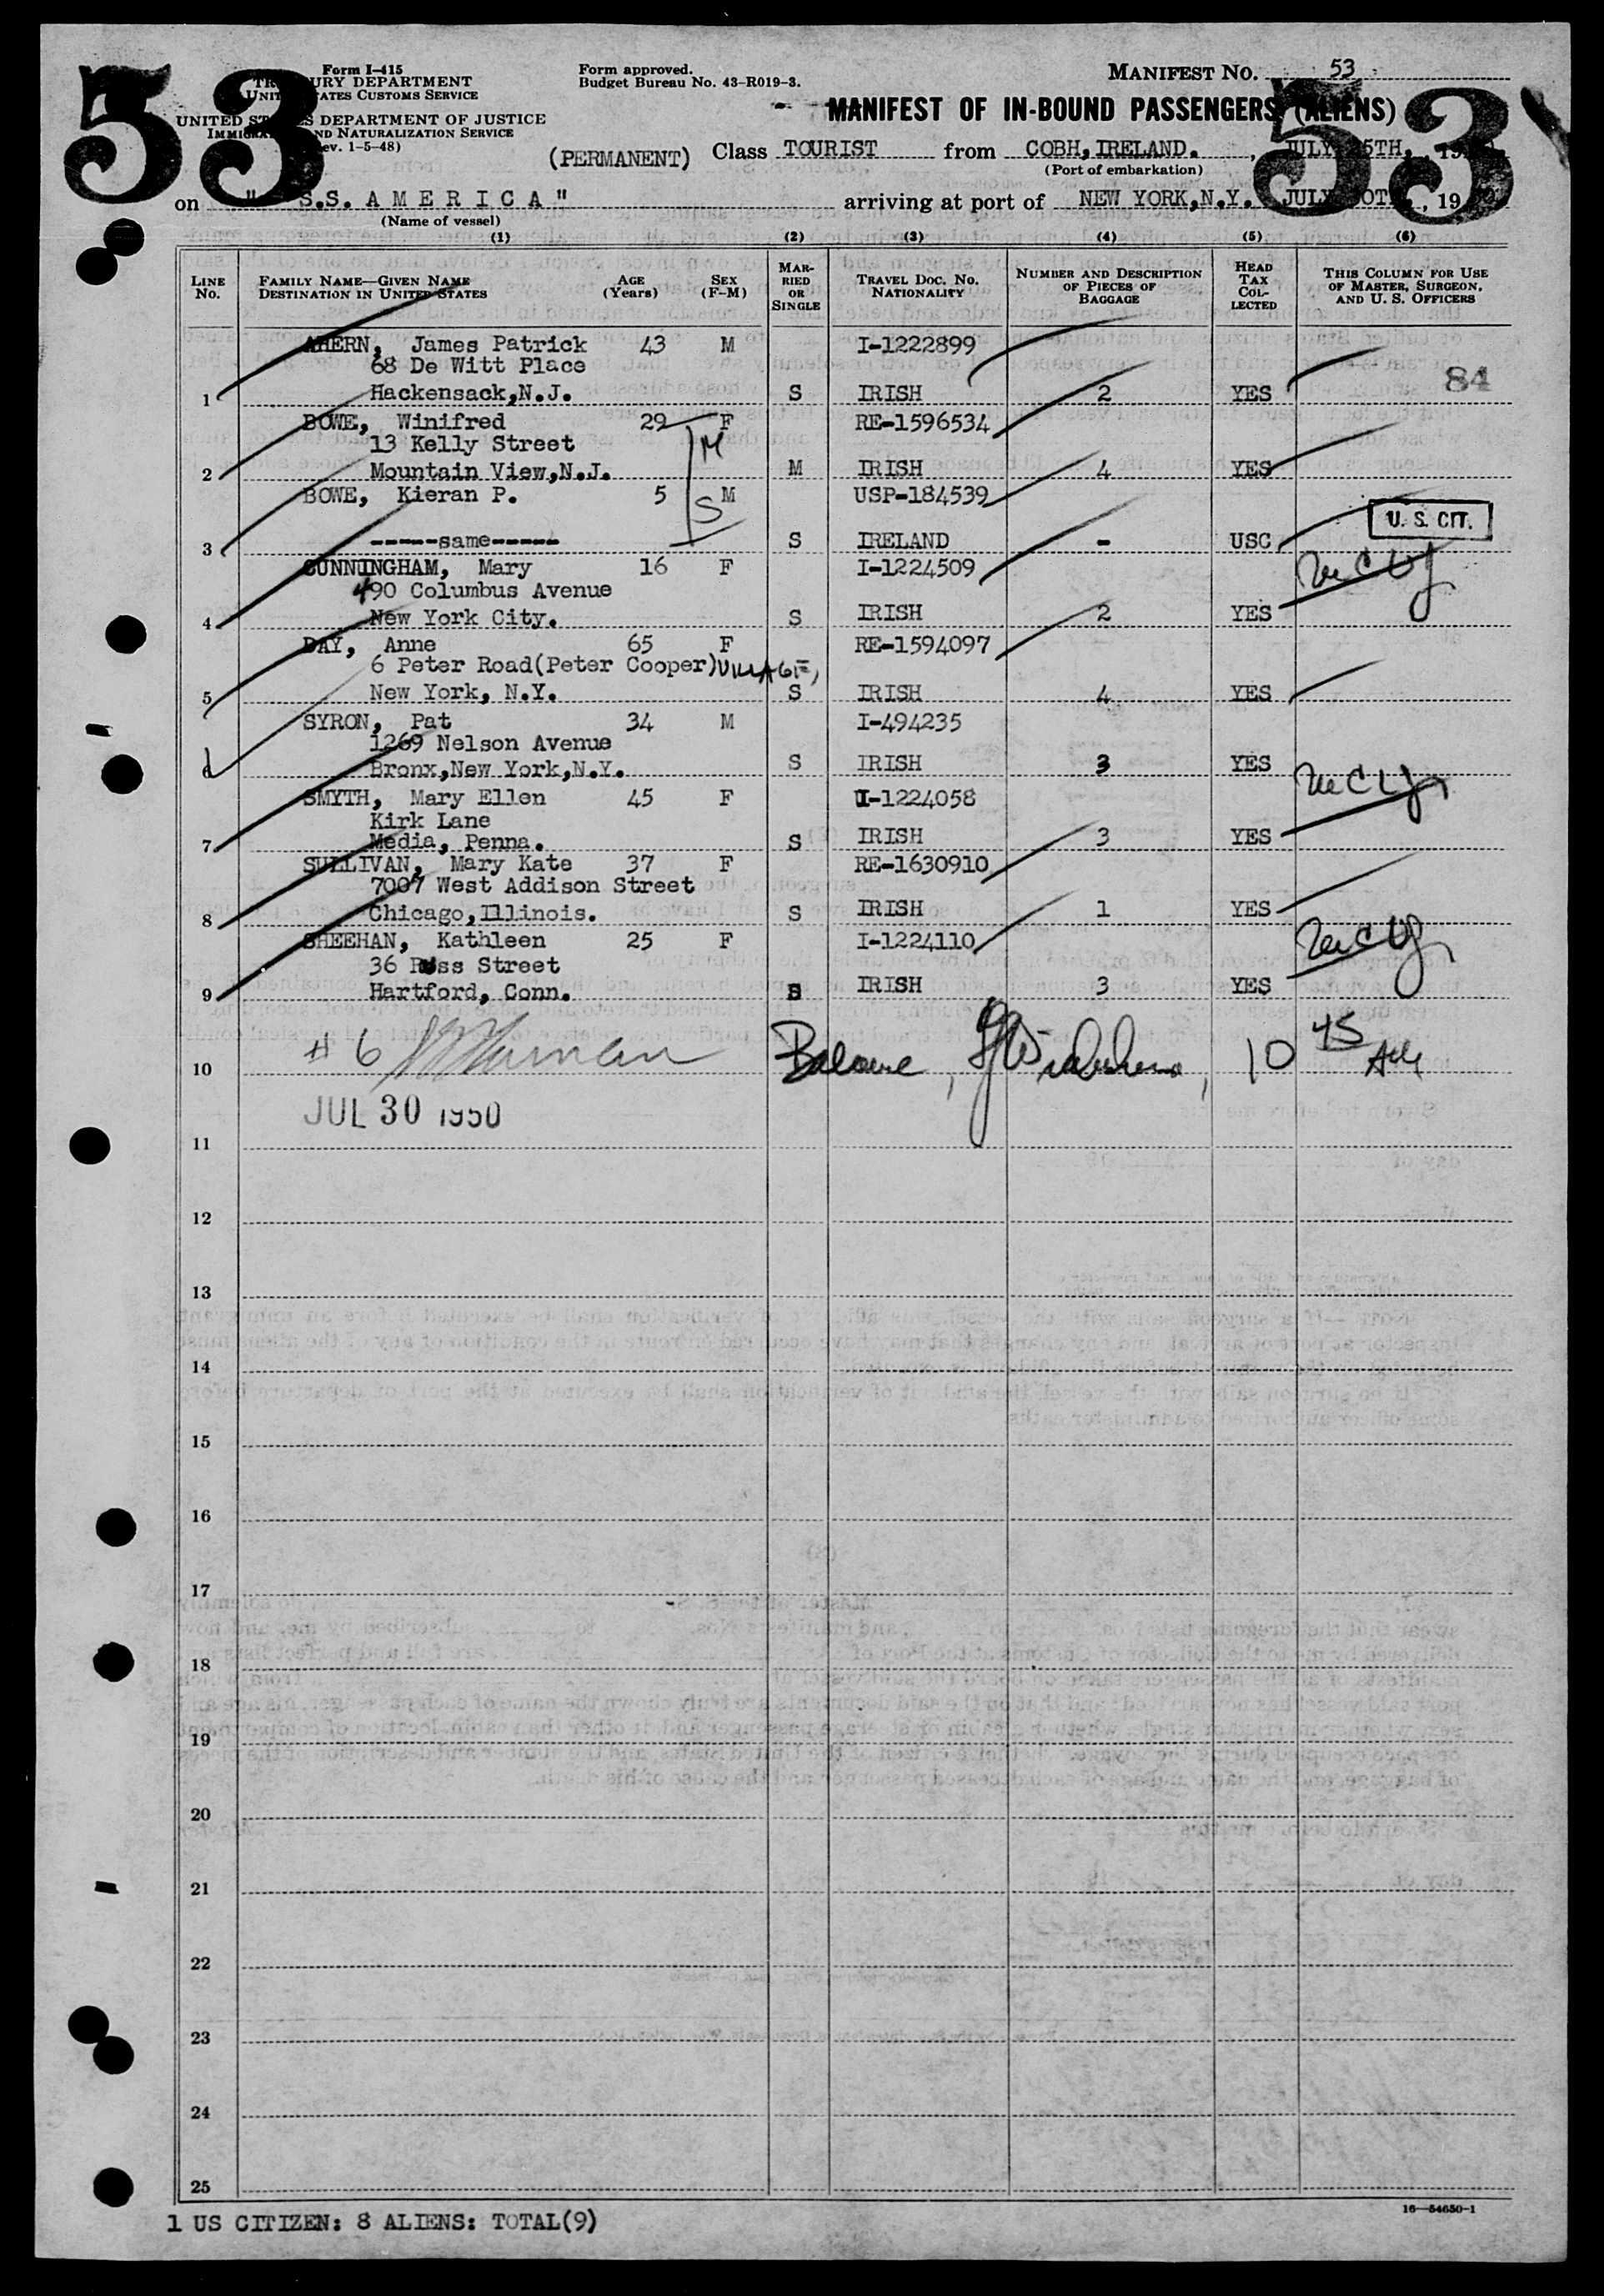 53
53
Form I-415
TREASURY DEPARTMENT
UNITED STATES CUSTOMS SERVICE
UNITED STATES DEPARTMENT OF JUSTICE
IMMIGRATION AND NATURALIZATION SERVICE
(Rev. 1-5-48)
Form approved.
Budget Bureau No. 43-R019-3.
MANIFEST NO. 53
MANIFEST OF IN-BOUND PASSENGERS (ALIENS)
(PERMANENT) Class TOURIST from COBH, IRELAND. , JULY 5TH, , 19
(Port of embarkation)
on " S.S. A M E R I C A " arriving at port of NEW YORK,N.Y. JULY , 19
(Name of vessel)
(1) (2) (3) (4) (5) (6)
LINE No. FAMILY NAME—GIVEN NAME DESTINATION IN UNITED STATES AGE (Years) SEX (F-M) MARRIED OR SINGLE TRAVEL DOC. NO. NATIONALITY NUMBER AND DESCRIPTION OF PIECES OF BAGGAGE HEAD TAX COLLECTED THIS COLUMN FOR USE OF MASTER, SURGEON, AND U. S. OFFICERS
AHERN, James Patrick 43 M I-1222899
68 De Witt Place 84
1 Hackensack,N.J. S IRISH 2 YES
BOWE, Winifred 29 F RE-1596534
13 Kelly Street M
2 Mountain View,N.J. M IRISH 4 YES
BOWE, Kieran P. 5 M USP-184539
S U. S. CIT.
3 -----same----- S IRELAND - USC
CUNNINGHAM, Mary 16 F I-1224509
490 Columbus Avenue
4 New York City. S IRISH 2 YES
DAY, Anne 65 F RE-1594097
6 Peter Road(Peter Cooper)VILLAGE,
5 New York, N.Y. S IRISH 4 YES
SYRON, Pat 34 M I-494235
1269 Nelson Avenue
6 Bronx,New York,N.Y. S IRISH 3 YES
SMYTH, Mary Ellen 45 F I-1224058
Kirk Lane
7 Media, Penna. S IRISH 3 YES
SULLIVAN, Mary Kate 37 F RE-1630910
7007 West Addison Street
8 Chicago,Illinois. S IRISH 1 YES
SHEEHAN, Kathleen 25 F I-1224110
36 Russ Street
9 Hartford, Conn. S IRISH 3 YES
10 # 6 10 45 AM
JUL 30 1950
11
12
13
14
15
16
17
18
19
20
21
22
23
24
25
16—54650-1
1 US CITIZEN: 8 ALIENS: TOTAL(9)